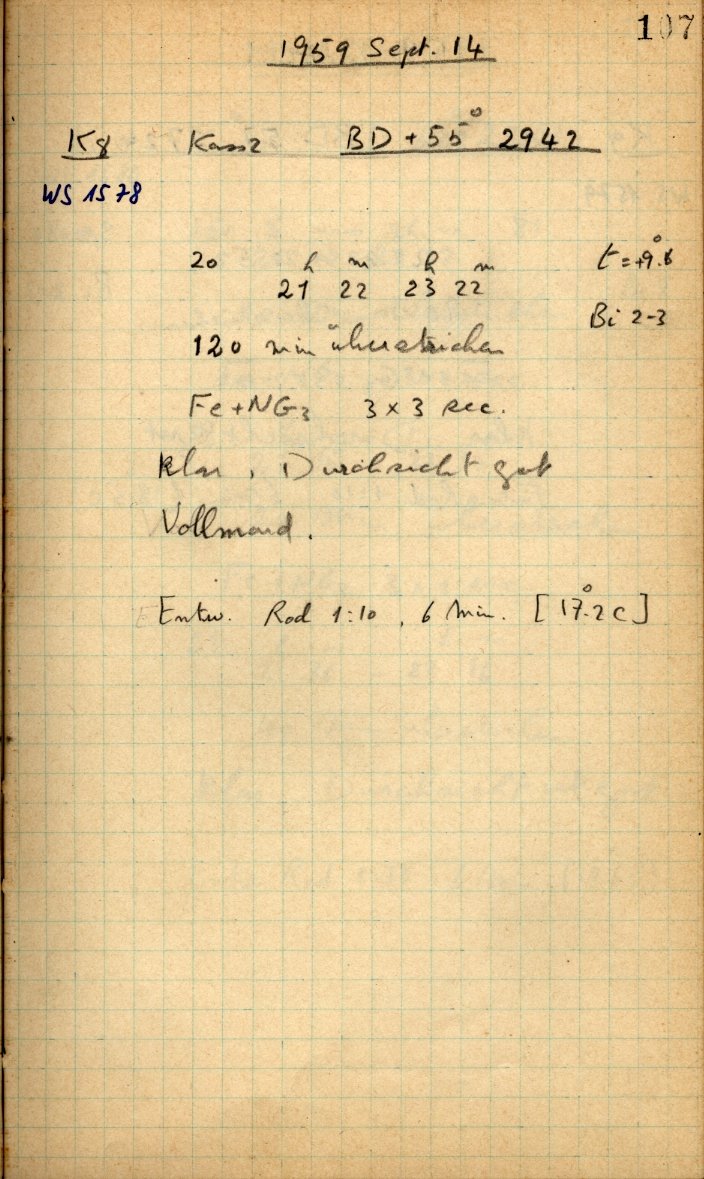 107
1959 Sept. 14
K8 Kass2 BD + 55° 2942
WS 1578
20 t = +9°.8
21h 22m 23h 22m
Bi 2-3
120 min überstrichen
Fe + NG3 3 x 3 sec.
klar, Durchsicht gut
Vollmond.
Entw. Rod 1:10, 6 Min. [17°.2 C]